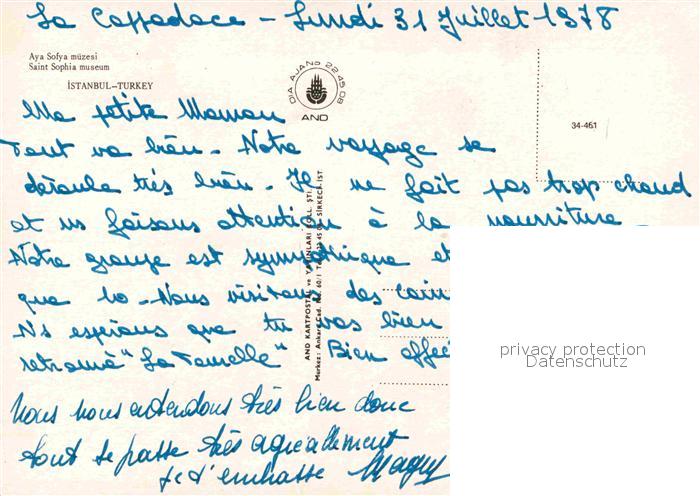 La Cappadoce - Lundi 31 Juillet 1978
Aya Sofya müzesi
Saint Sophia museum
İSTANBUL-TURKEY
AND AJANS 22 45 08
AND
34-461
Ma petite Maman
Tout va bien - Notre voyage se
déroule très bien - Il ne fait pas trop chaud
et ns faisons attention à la nourriture
Notre groupe est sympathique et
que - Nous visitons des coin
Ns espérons que tu vas bien
"La Tourelle" Bien affec
Nous nous entendons très bien donc
tout se passe très agréablement
je t'embrasse Maguy
AND KARTPOSTAL ve YAYINLARI KOLL. ŞTİ.
Merkez: Ankara Cad. No. 60/1 Tel. 22 45 08 SİRKECİ-İST
privacy protection
Datenschutz